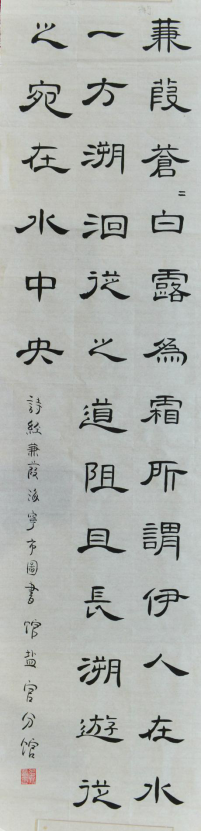 蒹葭蒼〻白露為霜所謂伊人在水
一方溯洄從之道阻且長溯遊從
之宛在水中央
詩經蒹葭海寧市圖書館盐官分馆